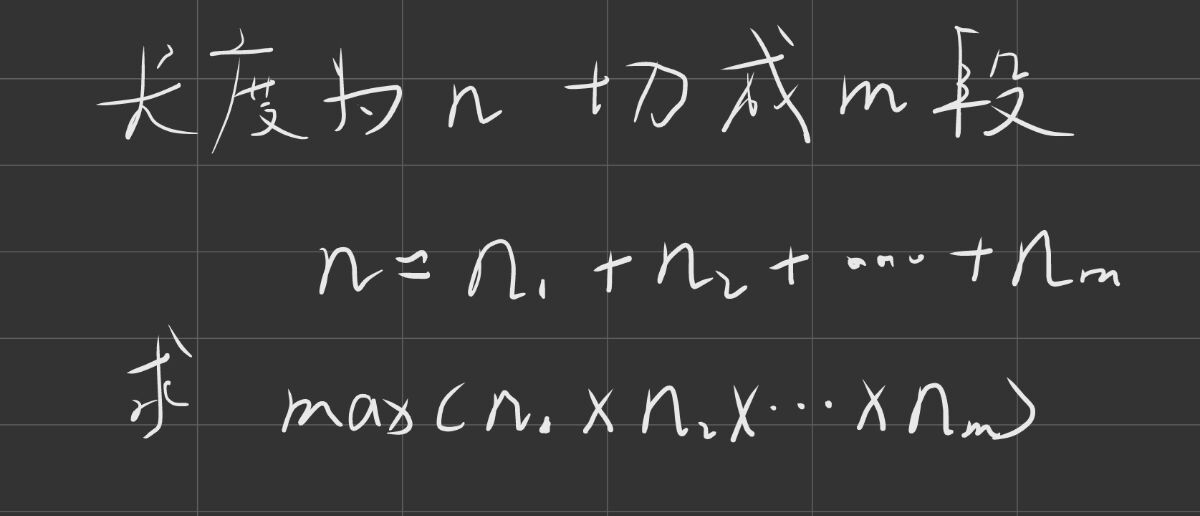 长度为 n 切成 m 段
n = n₁ + n₂ + ···· + nₘ
求 max(n₁ × n₂ × ··· × nₘ)